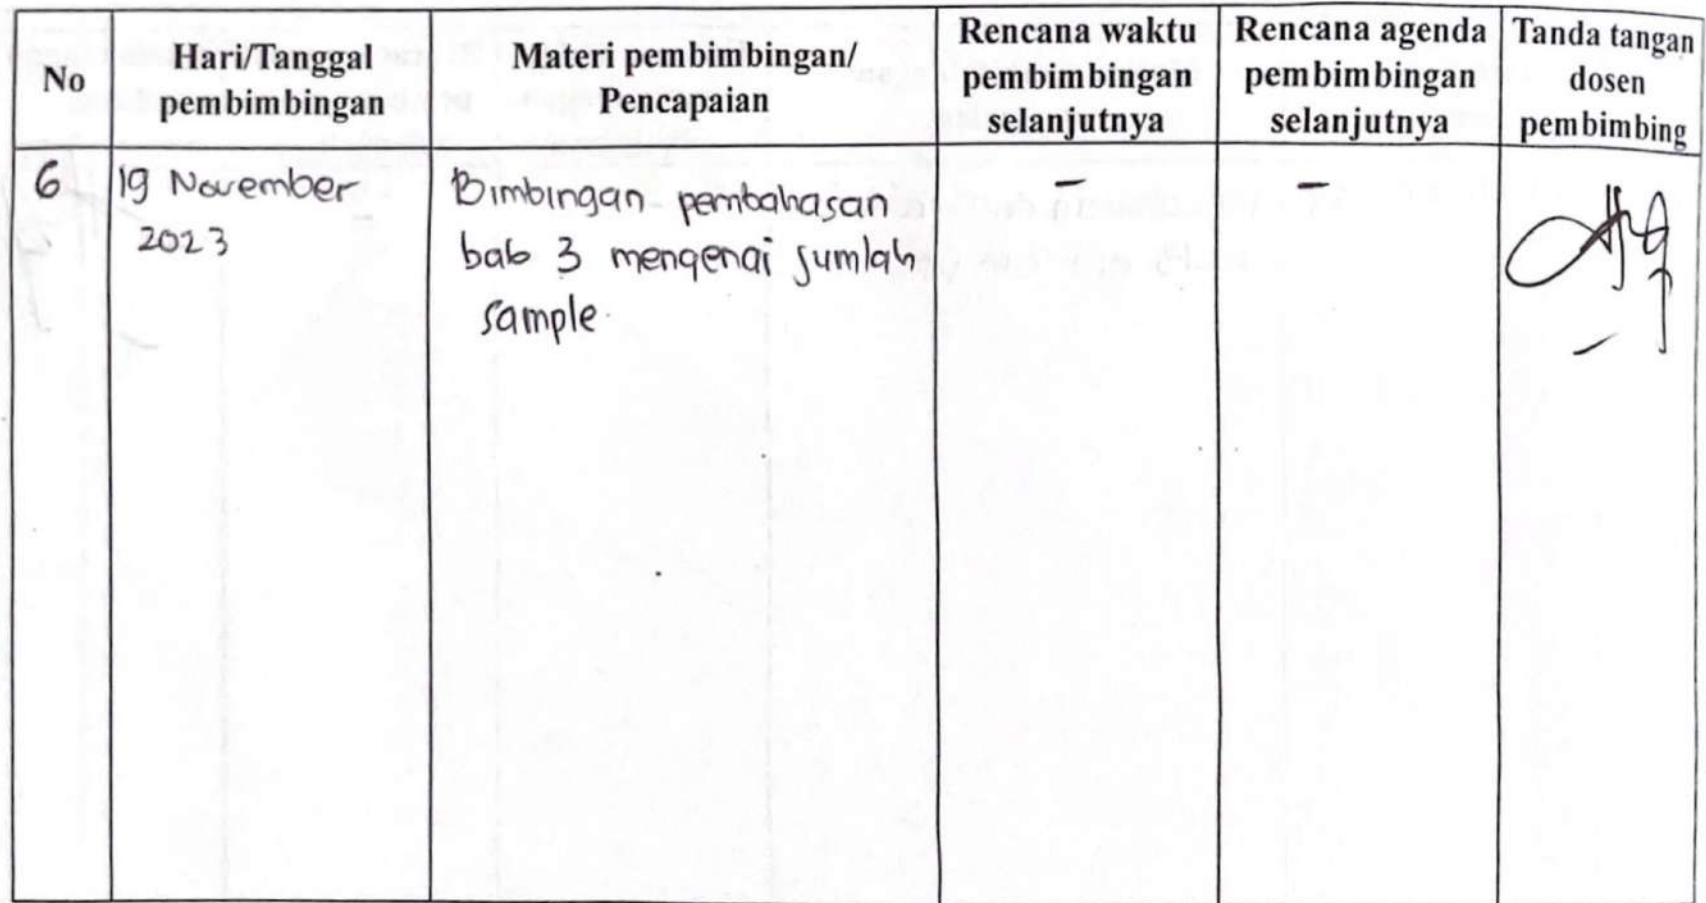 No
Hari/Tanggal
pembimbingan
Materi pembimbingan/
Pencapaian
Rencana waktu
pembimbingan
selanjutnya
Rencana agenda
pembimbingan
selanjutnya
Tanda tangan
dosen
pembimbing
6
19 November
2023
Bimbingan pembahasan
bab 3 mengenai jumlah
sample.
-
-